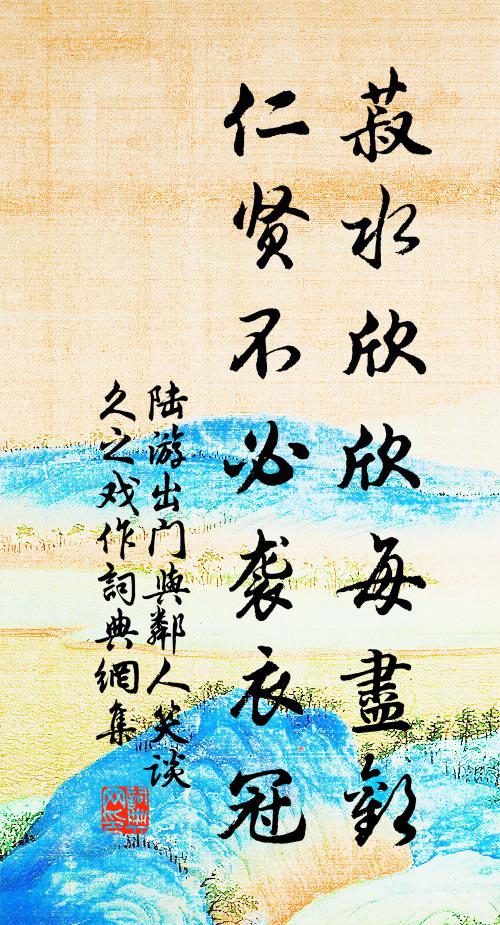 菽水欣欣每盡歡
仁贤不必袭衣冠
陆游出门與鄰人笑谈
久之戏作詞典網集